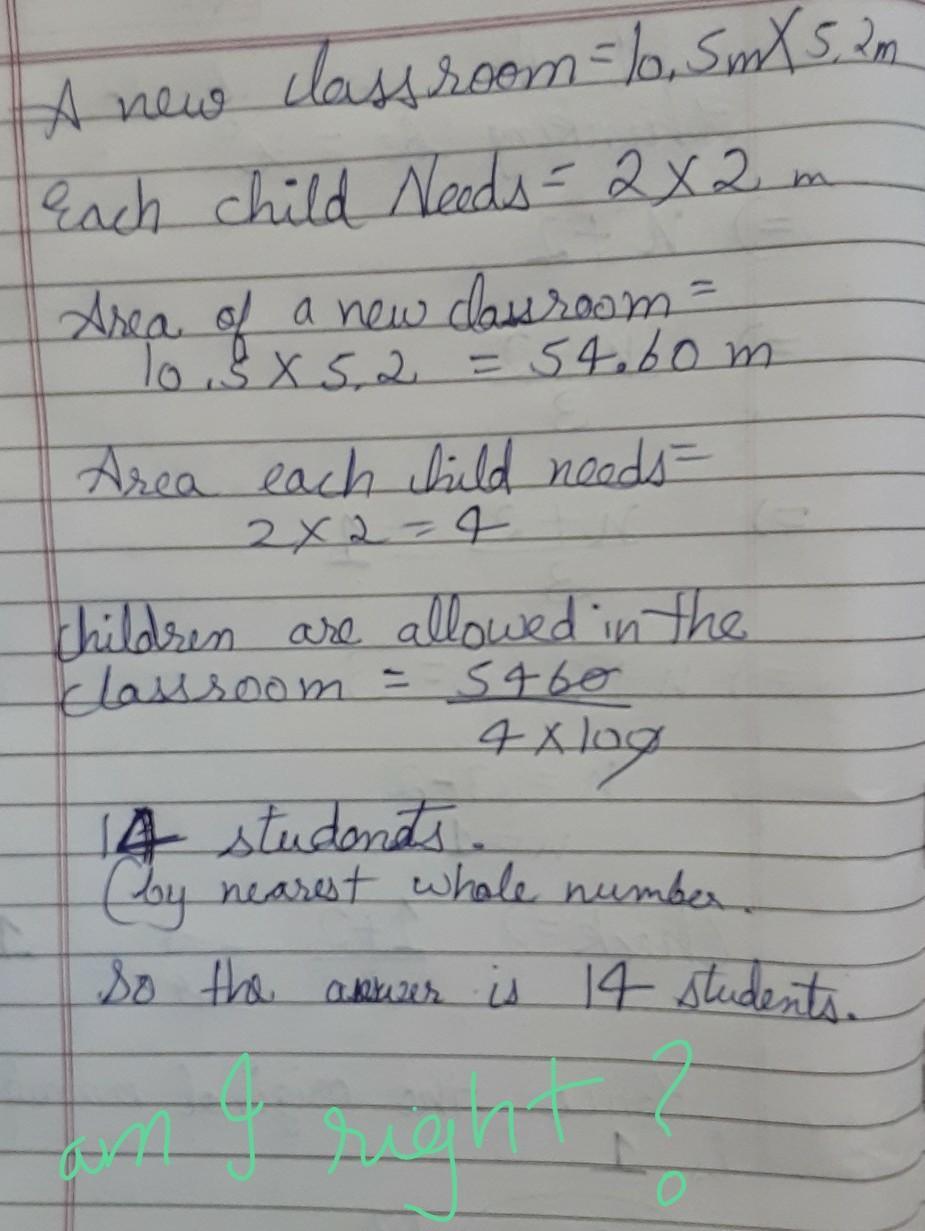 A new classroom = 10.5m X 5.2m
Each child Needs = 2 X 2 m
Area of a new classroom =
10.5 X 5.2 = 54.60 m
Area each child needs =
2 X 2 = 4
children are allowed in the
classroom = 5460
4 X 100
14 students.
(by nearest whole number.
So the answer is 14 students.
am I right ?